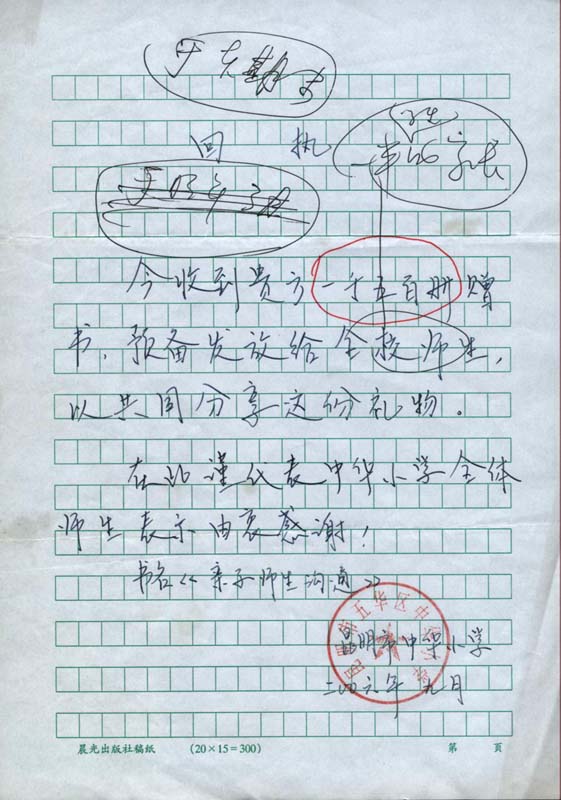 回执
今收到贵方一千五百册赠
书，预备发放给全校师生，
以共同分享这份礼物。
在此谨代表中华小学全体
师生表示由衷感谢！
书名《亲子师生沟通》
昆明市中华小学
二00六年 九月
晨光出版社稿纸 (20×15=300) 第 页